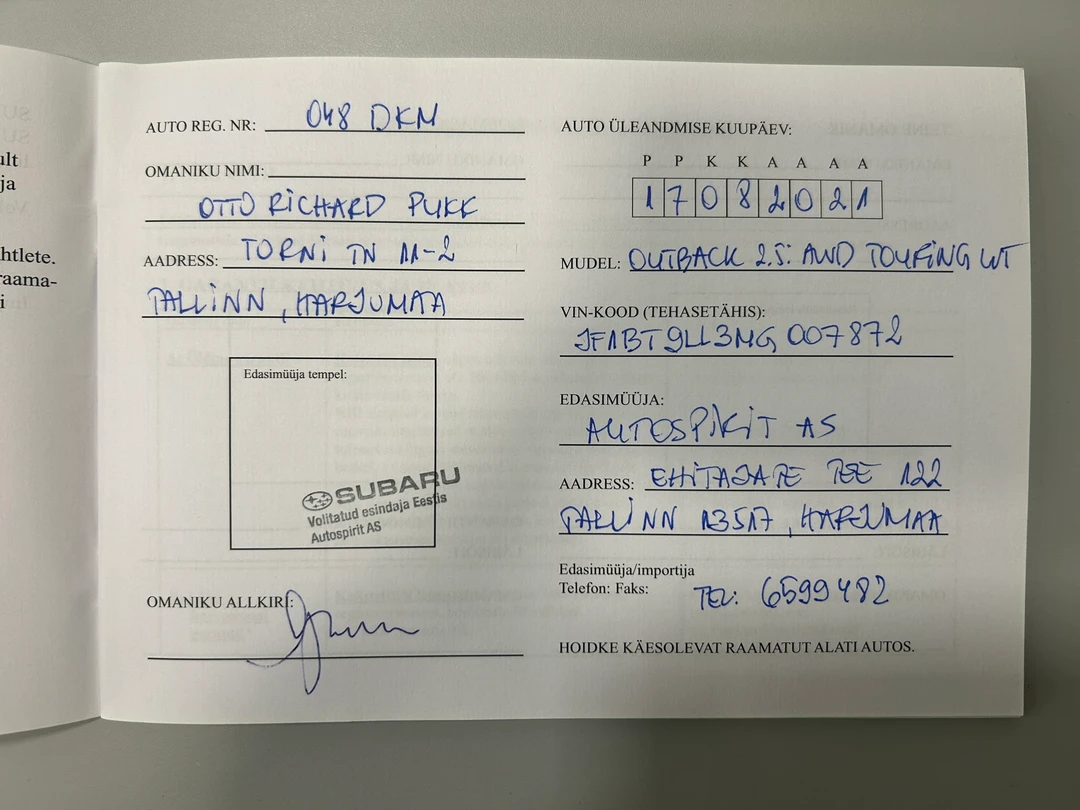 ult
ja
htlete.
raama-
i
AUTO REG. NR: 048 DKM
OMANIKU NIMI:
OTTO RICHARD PUKK
AADRESS: TORNI TN 11-2
TALLINN, HARJUMAA
Edasimüüja tempel:
SUBARU
Volitatud esindaja Eestis
Autospirit AS
OMANIKU ALLKIRI:
AUTO ÜLEANDMISE KUUPÄEV:
P P K K A A A A
1 7 0 8 2 0 2 1
MUDEL: OUTBACK 2.5i AWD TOURING WT
VIN-KOOD (TEHASETÄHIS):
JF1BT9LL3MG007872
EDASIMÜÜJA:
AUTOSPIRIT AS
AADRESS: EHITAJATE TEE 122
TALLINN 13517, HARJUMAA
Edasimüüja/importija
Telefon: Faks: TEL: 6599482
HOIDKE KÄESOLEVAT RAAMATUT ALATI AUTOS.